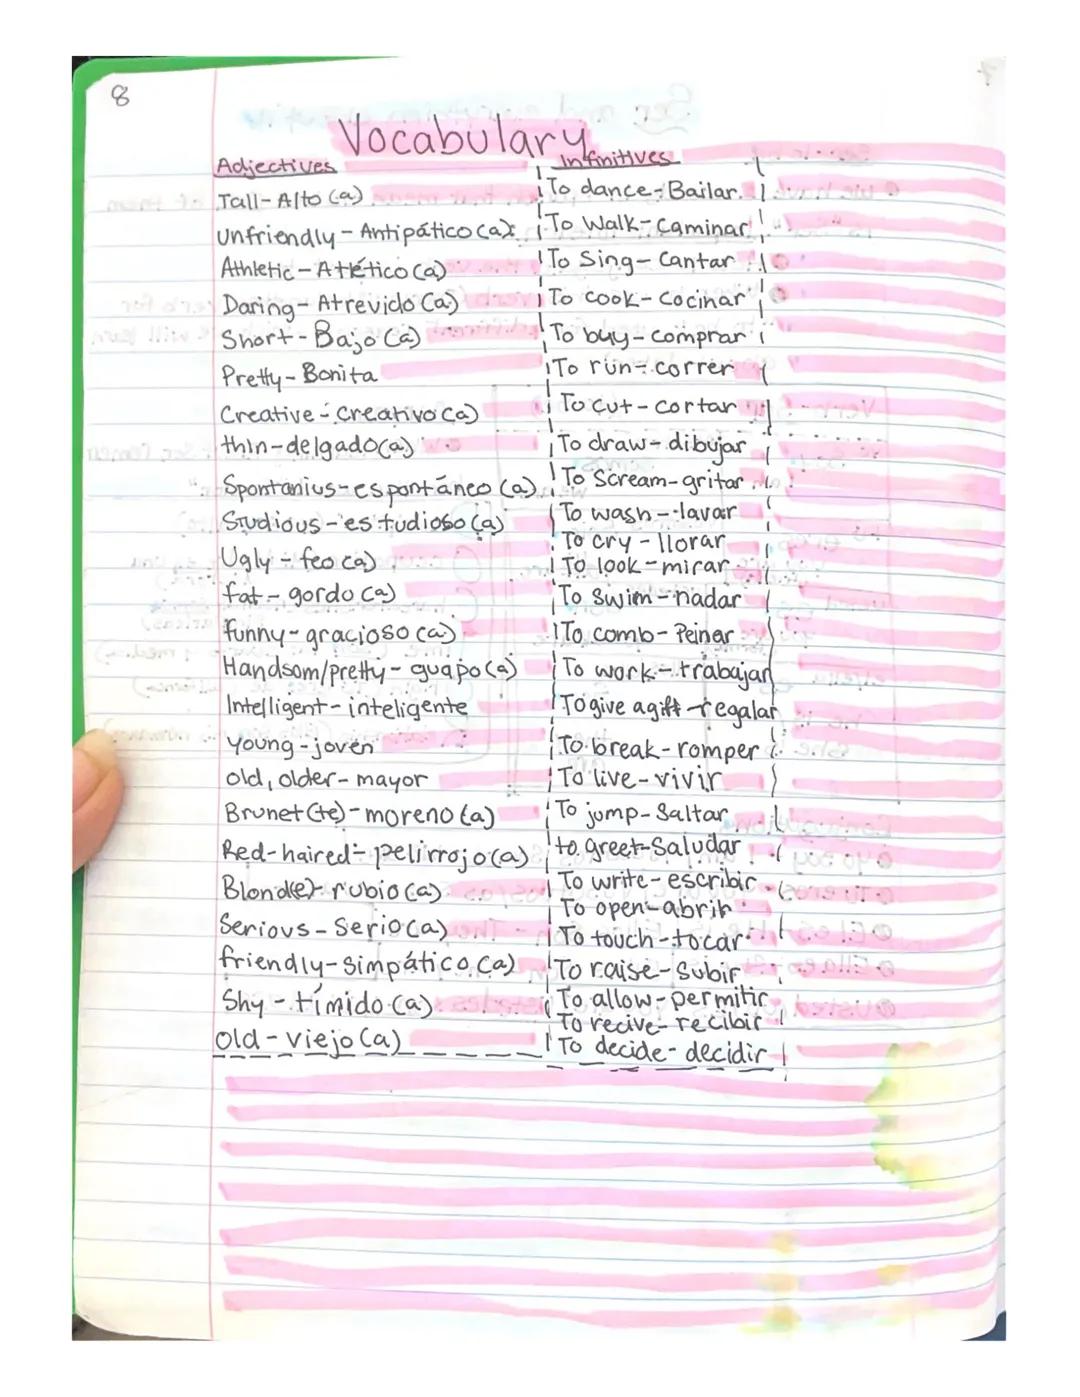 8
Vocabulary
Adjectives
Tall - Alto (a)
Unfriendly - Antipático (a)
Athletic - Atlético (a)
Daring - Atrevido (a)
Short - Bajo (a)
Pretty - Bonita
Creative - creativo (a)
thin - delgado(a)
Spontanius - espontáneo (a)
Studious - estudioso (a)
Ugly - feo (a)
fat - gordo (a)
funny - gracioso (a)
Handsom/pretty - guapo (a)
Intelligent - inteligente
young - joven
old, older - mayor
Brunet(te) - moreno (a)
Red-haired - pelirrojo (a)
Blond(e) - rubio (a)
Serious - Serio (a)
friendly - Simpático (a)
Shy - tímido (a)
old - viejo (a)
Infinitives
To dance - Bailar
To Walk - Caminar
To Sing - Cantar
To cook - Cocinar
To buy - comprar
To run - correr
To cut - cortar
To draw - dibujar
To Scream - gritar
To wash - lavar
To cry - llorar
To look - mirar
To Swim - nadar
To comb - Peinar
To work - trabajar
To give a gift - regalar
To break - romper
To live - vivir
To jump - Saltar
to greet - Saludar
To write - escribir
To open - abrir
To touch - tocar
To raise - Subir
To allow - permitir
To recive - recibir
To decide - decidir